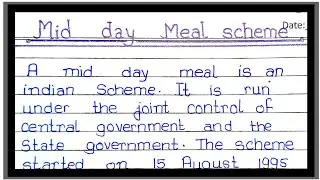 Date:
Mid day Meal scheme
A mid day meal is an
indian Scheme. It is run
under the joint control of
central government and the
State government. The scheme
started on 15 August 1995